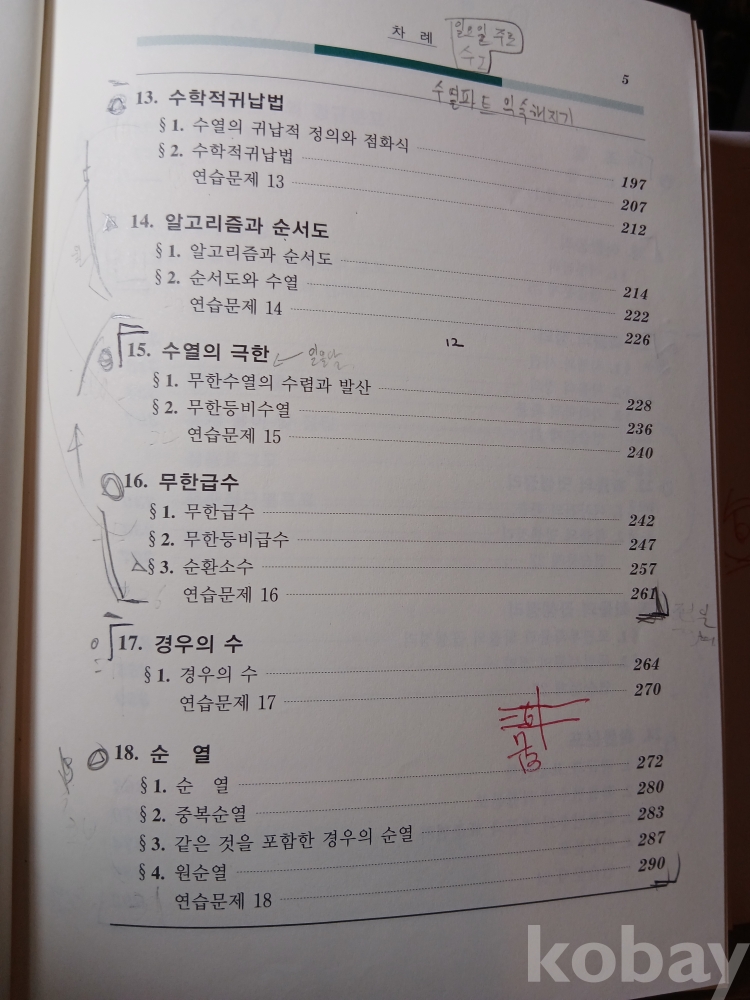 차 례
일요일 주로
수 I
5
수열파트 익숙해지기
13. 수학적귀납법
§ 1. 수열의 귀납적 정의와 점화식 197
§ 2. 수학적귀납법 207
연습문제 13 212
14. 알고리즘과 순서도
§ 1. 알고리즘과 순서도 214
§ 2. 순서도와 수열 222
연습문제 14 226
15. 수열의 극한
12
§ 1. 무한수열의 수렴과 발산 228
§ 2. 무한등비수열 236
연습문제 15 240
16. 무한급수
§ 1. 무한급수 242
§ 2. 무한등비급수 247
§ 3. 순환소수 257
연습문제 16 261
17. 경우의 수
§ 1. 경우의 수 264
연습문제 17 270
18. 순 열
§ 1. 순 열 272
§ 2. 중복순열 280
§ 3. 같은 것을 포함한 경우의 순열 283
§ 4. 원순열 287
연습문제 18 290
kobay